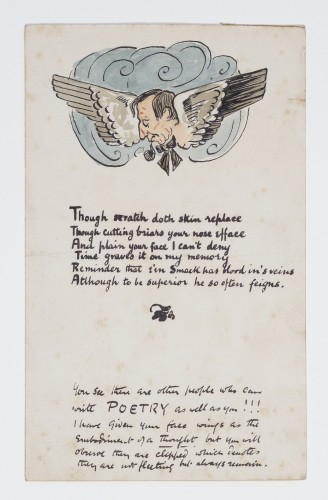 Though scratch doth skin replace
Though cutting briars your nose efface
And plain your face I can't deny
Time graves it on my memory
Reminder that e'en Smack has blood in's veins
Although to be superior he so often feigns.
You see there are other people who can
write POETRY as well as you!!!
I have given your face wings as the
Embodiment of a thought but you will
observe they are clipped which denotes
they are not fleeting but always remain.